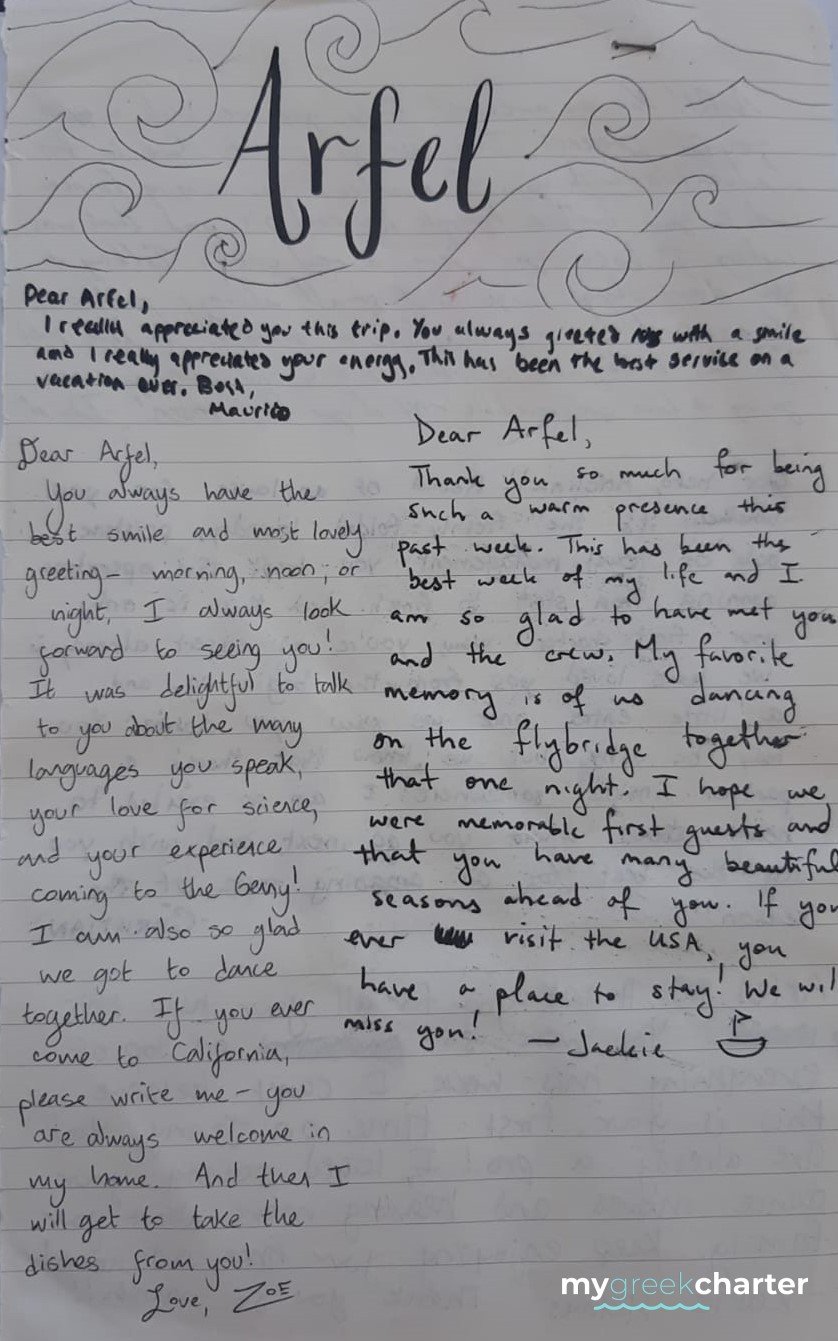 Arfel
Dear Arfel,
I really appreciated you this trip. You always greeted with a smile
and I really appreciated your energy. This has been the best service on a
vacation ever. Best,
Maurico
Dear Arfel,
You always have the
best smile and most lovely
greeting - morning, noon, or
night, I always look
forward to seeing you!
It was delightful to talk
to you about the many
languages you speak,
your love for science,
and your experience
coming to the Genny!
I am also so glad
we got to dance
together. If you ever
come to California,
please write me - you
are always welcome in
my home. And then I
will get to take the
dishes from you!
Love, ZOE
Dear Arfel,
Thank you so much for being
such a warm presence this
past week. This has been the
best week of my life and I
am so glad to have met you
and the crew. My favorite
memory is of us dancing
on the flybridge together
that one night. I hope we
were memorable first guests and
that you have many beautiful
seasons ahead of you. If you
ever visit the USA, you
have a place to stay! We will
miss you!
- Jackie
mygreekcharter